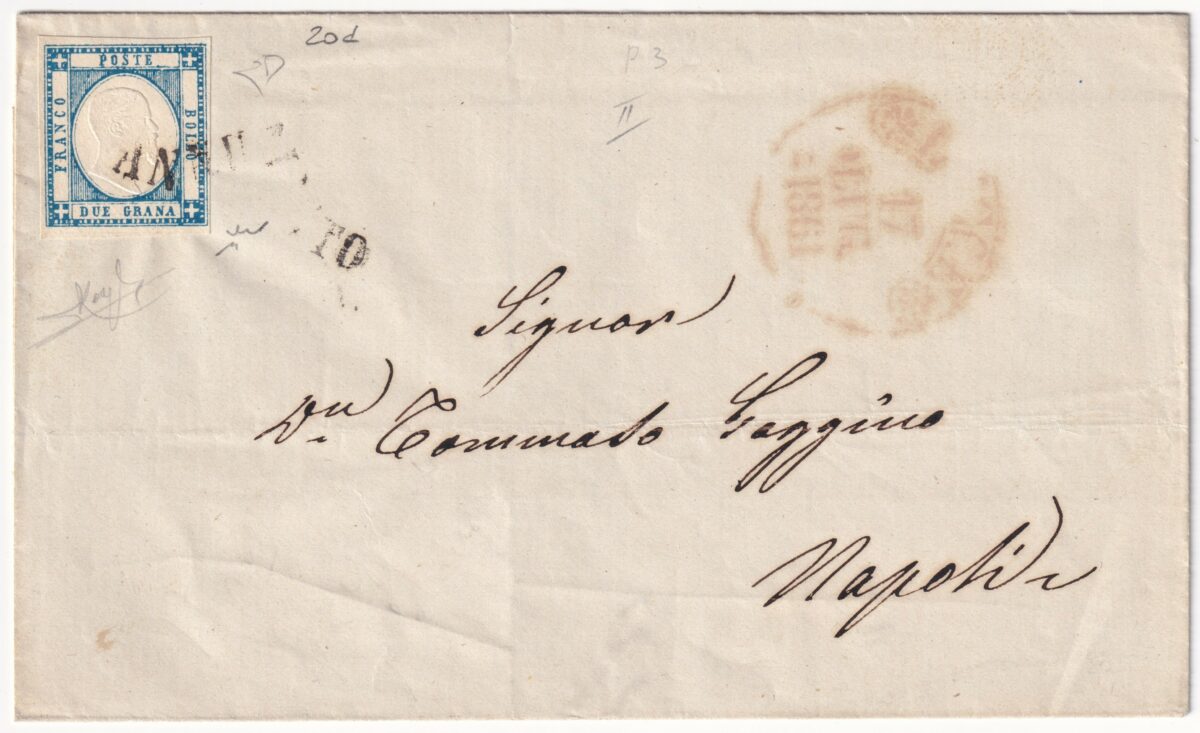 20d
POSTE
FRANCO
BOLLO
DUE GRANA
P 3
II
17
1861
Signor
Dn Tommaso Gaggino
Napoli